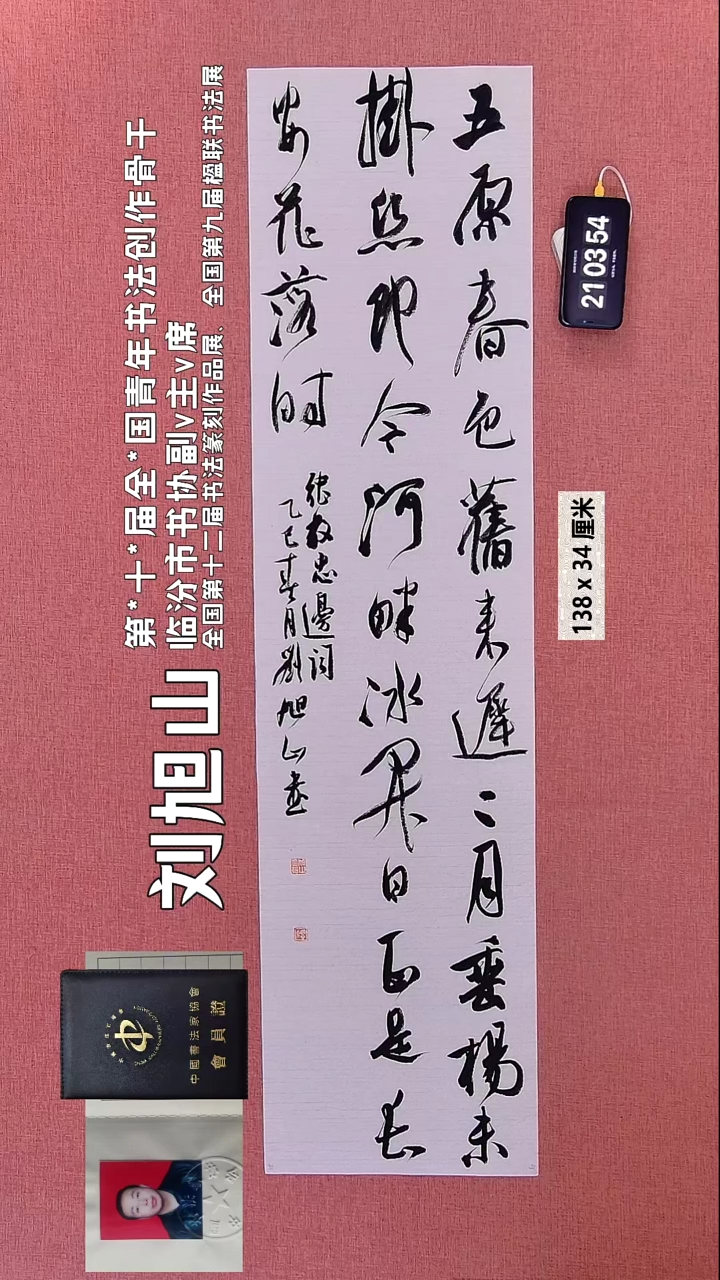 五原春色舊来遲二月垂楊未
掛絲即今河畔冰開日正是長
安花落时
張敬忠邊词
乙巳春月劉旭山書
刘旭山
第*十*届全*国青年书法创作骨干
临汾市书协副v主v席
全国第十二届书法篆刻作品展、全国第九届楹联书法展
中國書法家協會
會員證
21 03 54
138 x 34 厘米